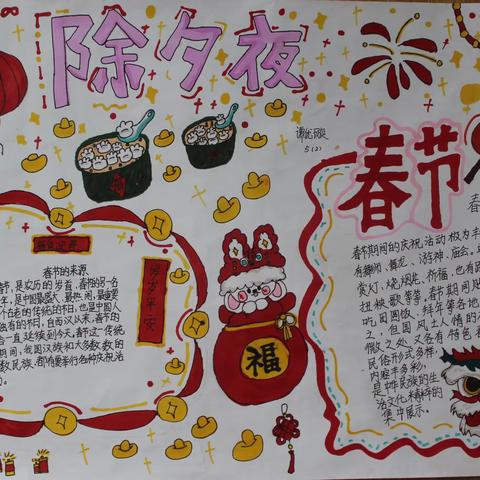 除夕夜
5(2)
春节
春节的来源
节,是农历的岁首,春节的另一名
年,是中国最盛大、最热闹、最重要
个古老的传统节日,也是中国人
独有的节日,自西汉以来,春节的
俗一直延续到今天,春节这一传统
期间,我国汉族和大多数数的
数民族,都有要举行各种庆祝活
岁岁平安
福
春节期间的庆祝活动极为丰
有舞狮、舞龙、游神、庙会、
赏灯、烧烟花、祈福、也有踩
扭秧歌等等,春节期间贴
吃团圆饭、拜年等各地
之,但因风土人情的不
微之处又各有特色
民俗形式多样,
内容丰多彩,
是中华民族的生
活文化精粹的
集中展示。